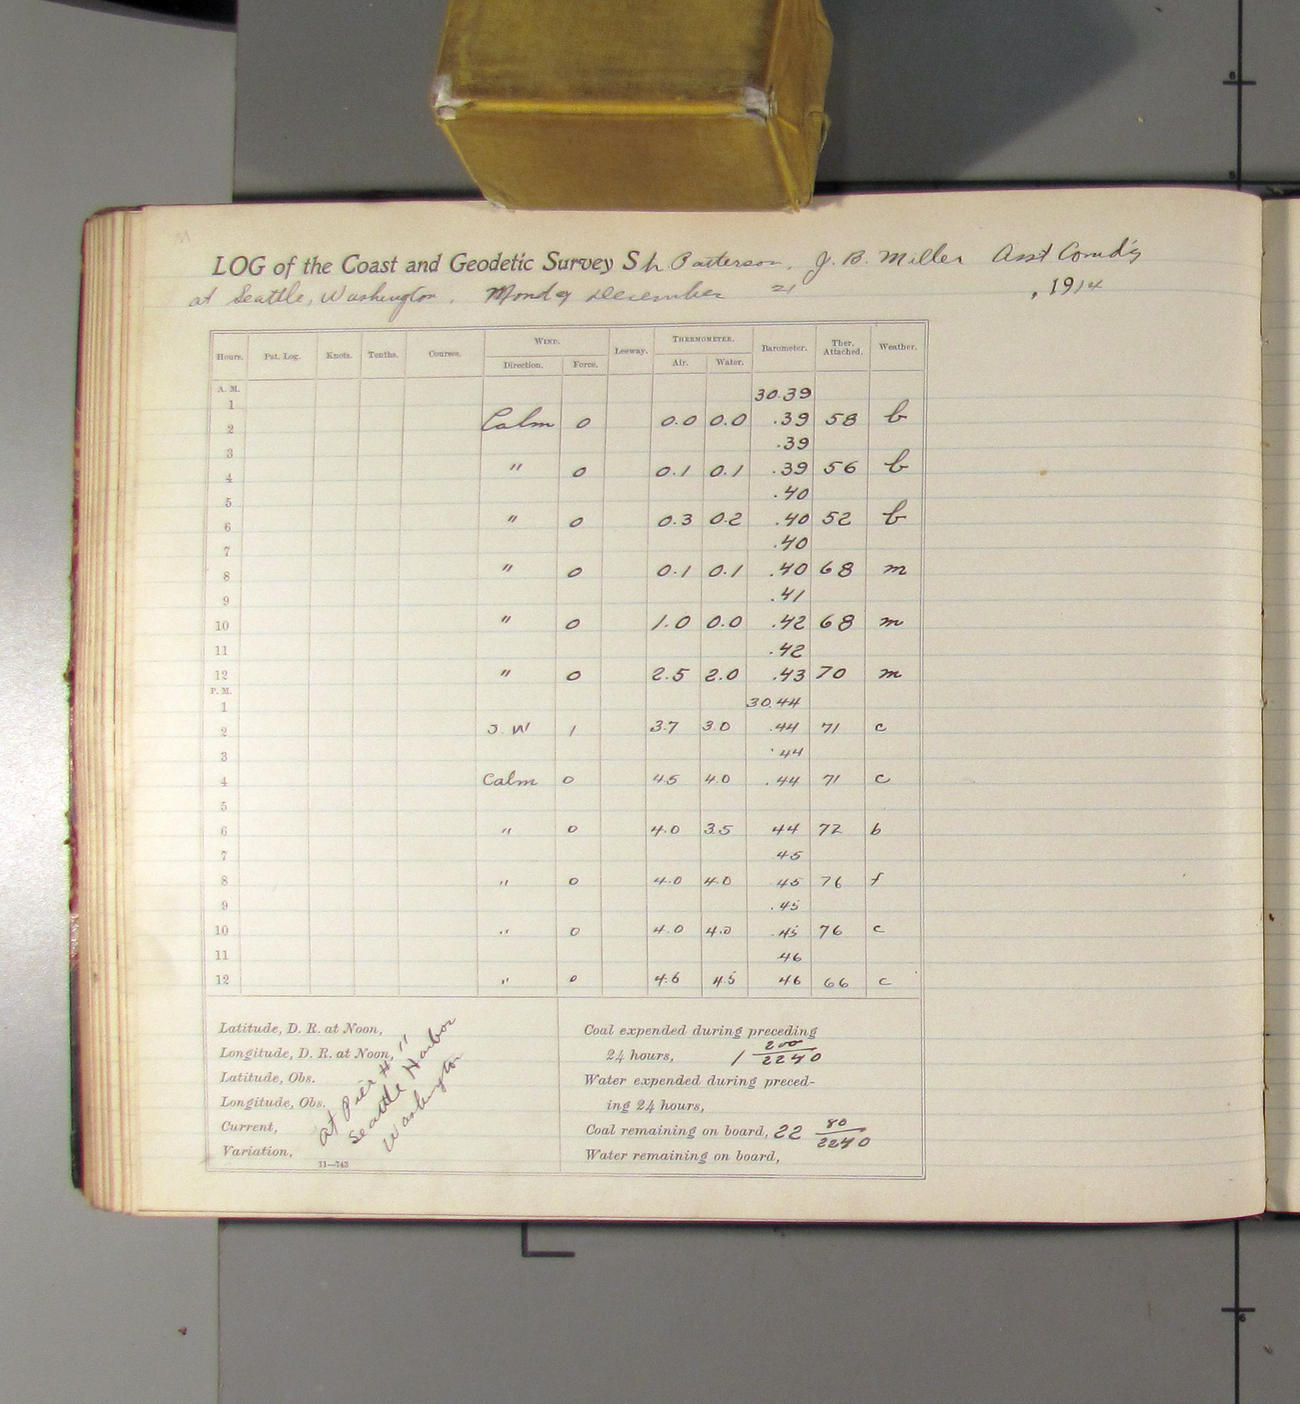 LOG of the Coast and Geodetic Survey Str Patterson, J. B. Miller Asst Comd'g
at Seattle, Washington, Monday December 21, 1914
Hours. Pat. Log. Knots. Tenths. Courses. Wind. Direction. Force. Leeway. Thermometer. Air. Water. Barometer. Ther. Attached. Weather.
A. M.
1 30.39
2 Calm 0 0.0 0.0 .39 58 b
3 .39
4 " 0 0.1 0.1 .39 56 b
5 .40
6 " 0 0.3 0.2 .40 52 b
7 .40
8 " 0 0.1 0.1 .40 68 m
9 .41
10 " 0 1.0 0.0 .42 68 m
11 .42
12 " 0 2.5 2.0 .43 70 m
P. M.
1 30.44
2 S. W 1 3.7 3.0 .44 71 c
3 .44
4 Calm 0 4.5 4.0 .44 71 c
5
6 " 0 4.0 3.5 44 72 b
7 45
8 " 0 4.0 4.0 45 76 f
9 .45
10 " 0 4.0 4.0 .45 76 c
11 46
12 " 0 4.6 4.5 46 66 c
Latitude, D. R. at Noon,
Longitude, D. R. at Noon,
Latitude, Obs.
Longitude, Obs.
Current,
Variation,
11—743
at Pier #
Seattle Harbor
Washington
Coal expended during preceding
24 hours, 1 200/2240
Water expended during preced-
ing 24 hours,
Coal remaining on board, 22 80/2240
Water remaining on board,